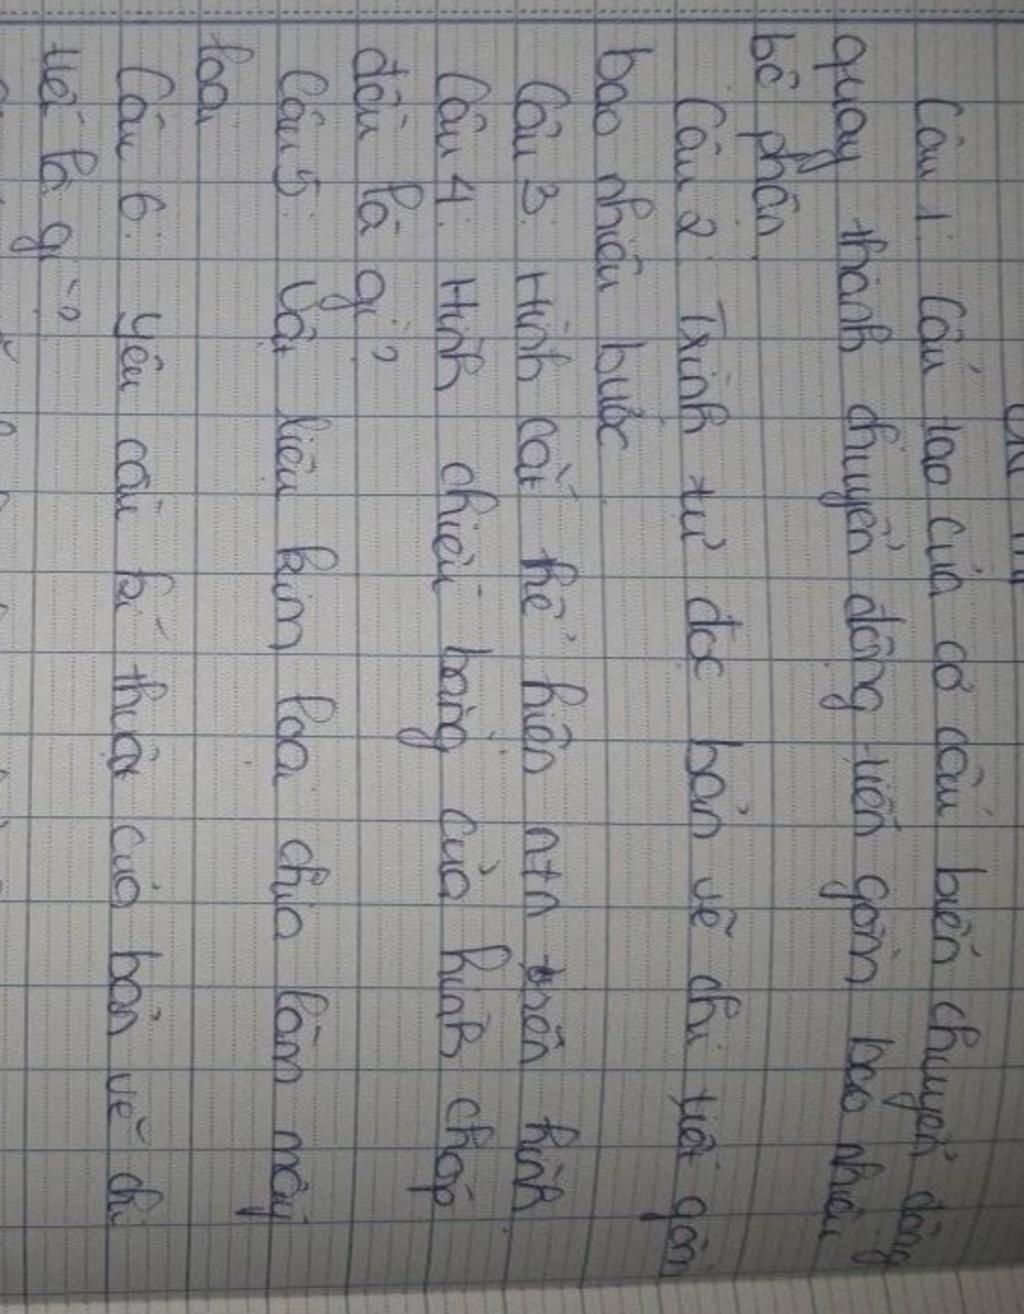 Câu 1: Cấu tạo của cơ cấu biến chuyển động
quay thành chuyển động tiến gồm bao nhiêu
bộ phận
Câu 2: Trình tự đọc bản vẽ chi tiết gồm
bao nhiêu bước
Câu 3: Hình cắt thể hiện ntn trên hình
Câu 4: Hình chiếu bằng của hình chóp
đều là gì?
Câu 5: Vật liệu kim loại chia làm mấy
loại
Câu 6: Yêu cầu kĩ thuật của bản vẽ chi
tiết là gì?